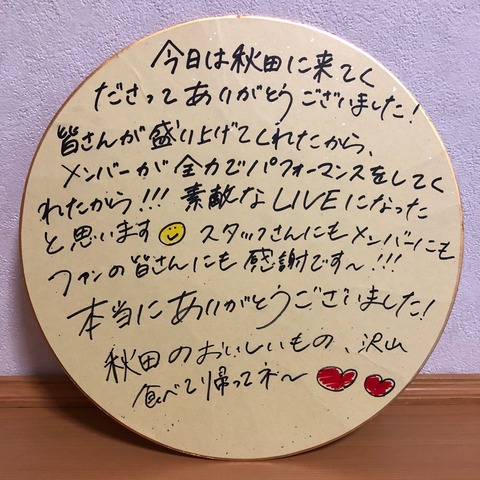 今日は秋田に来てく
ださってありがとうございました!
皆さんが盛り上げてくれたから、
メンバーが全力でパフォーマンスをしてく
れたから!!!素敵なLIVEになった
と思います スタッフさんにもメンバーにも
ファンの皆さんにも感謝です〜!!!
本当にありがとうございました!
秋田のおいしいもの、沢山
食べて帰ってネ〜